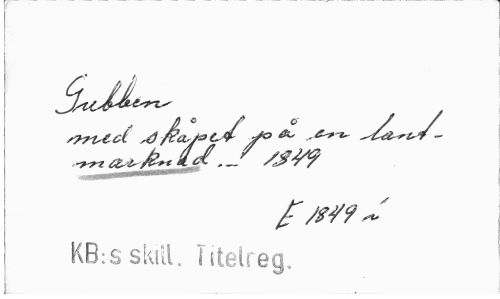 Gubben
med skåpet på en lant-
marknad.- 1849
E 1849 i
KB:s skill. Titelreg.